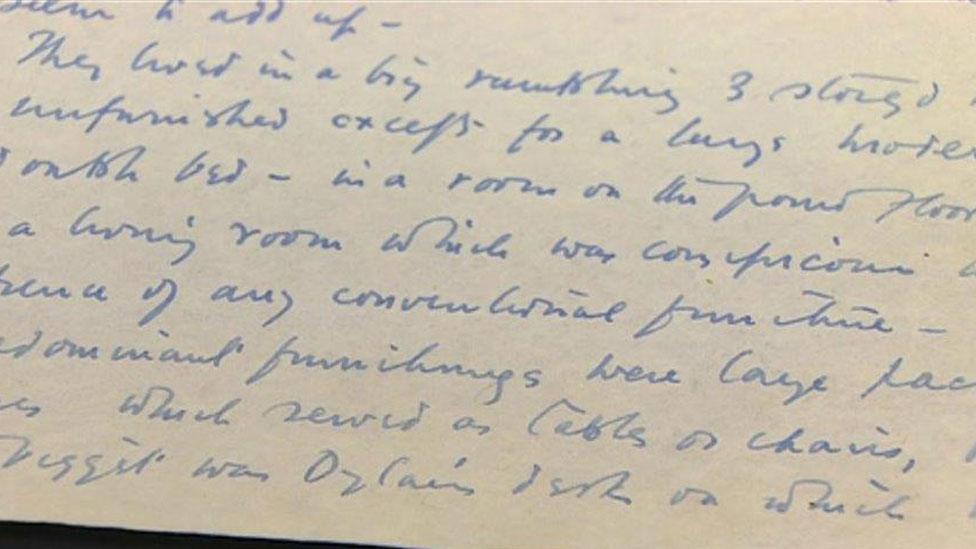 seem to add up -
They lived in a big rambling 3 storeyd
unfurnished except for a large modern
double bed - in a room on the ground floor
a living room which was conspicuous
absence of any conventional furniture -
predominant furnishings were large packing
cases which served as tables or chairs,
biggest was Dylan's desk on which